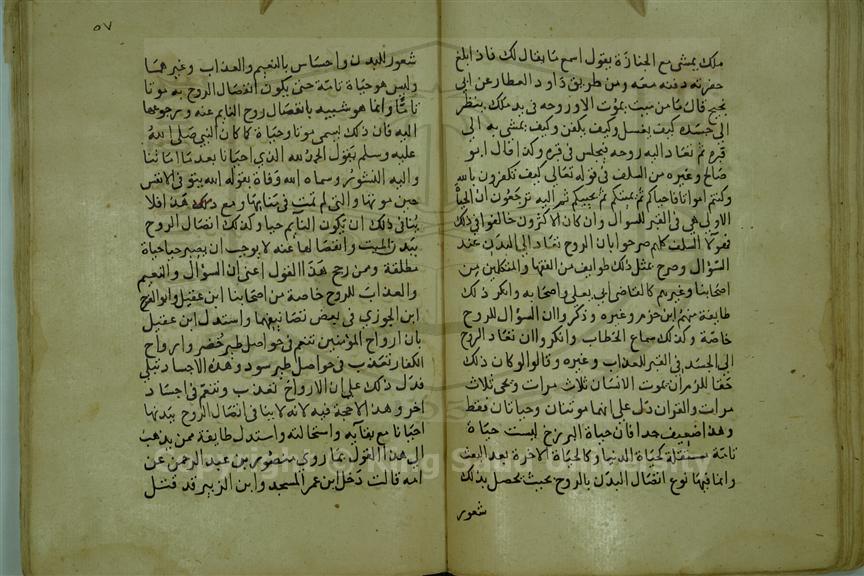 ملك يمشي مع الجنازة يقول اسمع ما يقال لك فاذا بلغ
حفرته دفنه معه ومن طريق داود العطار عن ابي
نجيح قال ما من ميت يموت الا وروحه في يد ملك ينظر
الى جسده كيف يغسل وكيف يكفن وكيف يمشى به الى
قبره ثم تعاد اليه روحه فيجلس في قبره وكذا قال ابو
صالح وغيره من السلف في قوله تعالى كيف تكفرون بالله
وكنتم امواتا فاحياكم ثم يميتكم ثم يحييكم ثم اليه ترجعون ان الحياة
الاولى هي في القبر للسوال وان كان الاكثرون خالفوا في ذلك
فهولا السلف كلهم صرحوا بان الروح تعاد الى البدن عند
السوال وصرح بمثل ذلك طوايف من الفقها والمتكلمين من
اصحابنا وغيرهم كالقاضي ابي يعلى واصحابه وانكر ذلك
طايفة منهم ابن حزم وغيره وذكروا ان السوال للروح
خاصة وكذلك سماع الخطاب وانكروا ان تعاد الروح
الى الجسد في القبر للعذاب وغيره وقالوا لو كان ذلك
حقا للزم ان يموت الانسان ثلاث مرات ويحيى ثلاث
مرات والقران دل على انهما موتتان وحياتان فقط
وهذا ضعيف جدا فان حياة البرزخ ليست حياة
تامة مستقلة كحياة الدنيا وكالحياة الاخرة بعد البعث
وانما فيها نوع اتصال البدن بالروح بحيث يحصل بذلك
شعور
٥٧
شعور للبدن واحساس بالنعيم والعذاب وغيرهما
وليس هو حياة تامة حتى يكون انفصال الروح به موتا
تاما وانما هو شبيه بانفصال روح النايم عنه ورجوعها
اليه فان ذلك يسمى موتا وحياة كما كان النبي صلى الله
عليه وسلم يقول الحمد لله الذي احيانا بعد ما اماتنا
واليه النشور وسماه الله وفاة بقوله الله يتوفى الانفس
حين موتها والتي لم تمت في منامها ومع ذلك هذا فلا
ينافي ذلك ان يكون النايم حيا وكذلك اتصال الروح
ببدن الميت وانفصالها عنه لا يوجب ان يصير حيا حياة
مطلقة وممن رجح هذا القول اعني ان السوال والنعيم
والعذاب للروح خاصة من اصحابنا ابن عقيل وابو الفرج
ابن الجوزي في بعض تصانيفهما واستدل ابن عقيل
بان ارواح المومنين تتنعم في حواصل طير خضر وارواح
الكفار تتعذب في حواصل طير سود وهذه الاجساد تبلى
فدل ذلك على ان الارواح تعذب وتنعم في اجساد
اخر وهذا لا حجة فيه لانه لا ينافي اتصال الروح ببدنها
احيانا مع بقايه واستحالته واستدل طايفة ممن يذهب
الى هذا القول بما روي منصور بن عبد الرحمن عن
امه قالت دخل ابن عمر المسجد وابن الزبير قد قتل